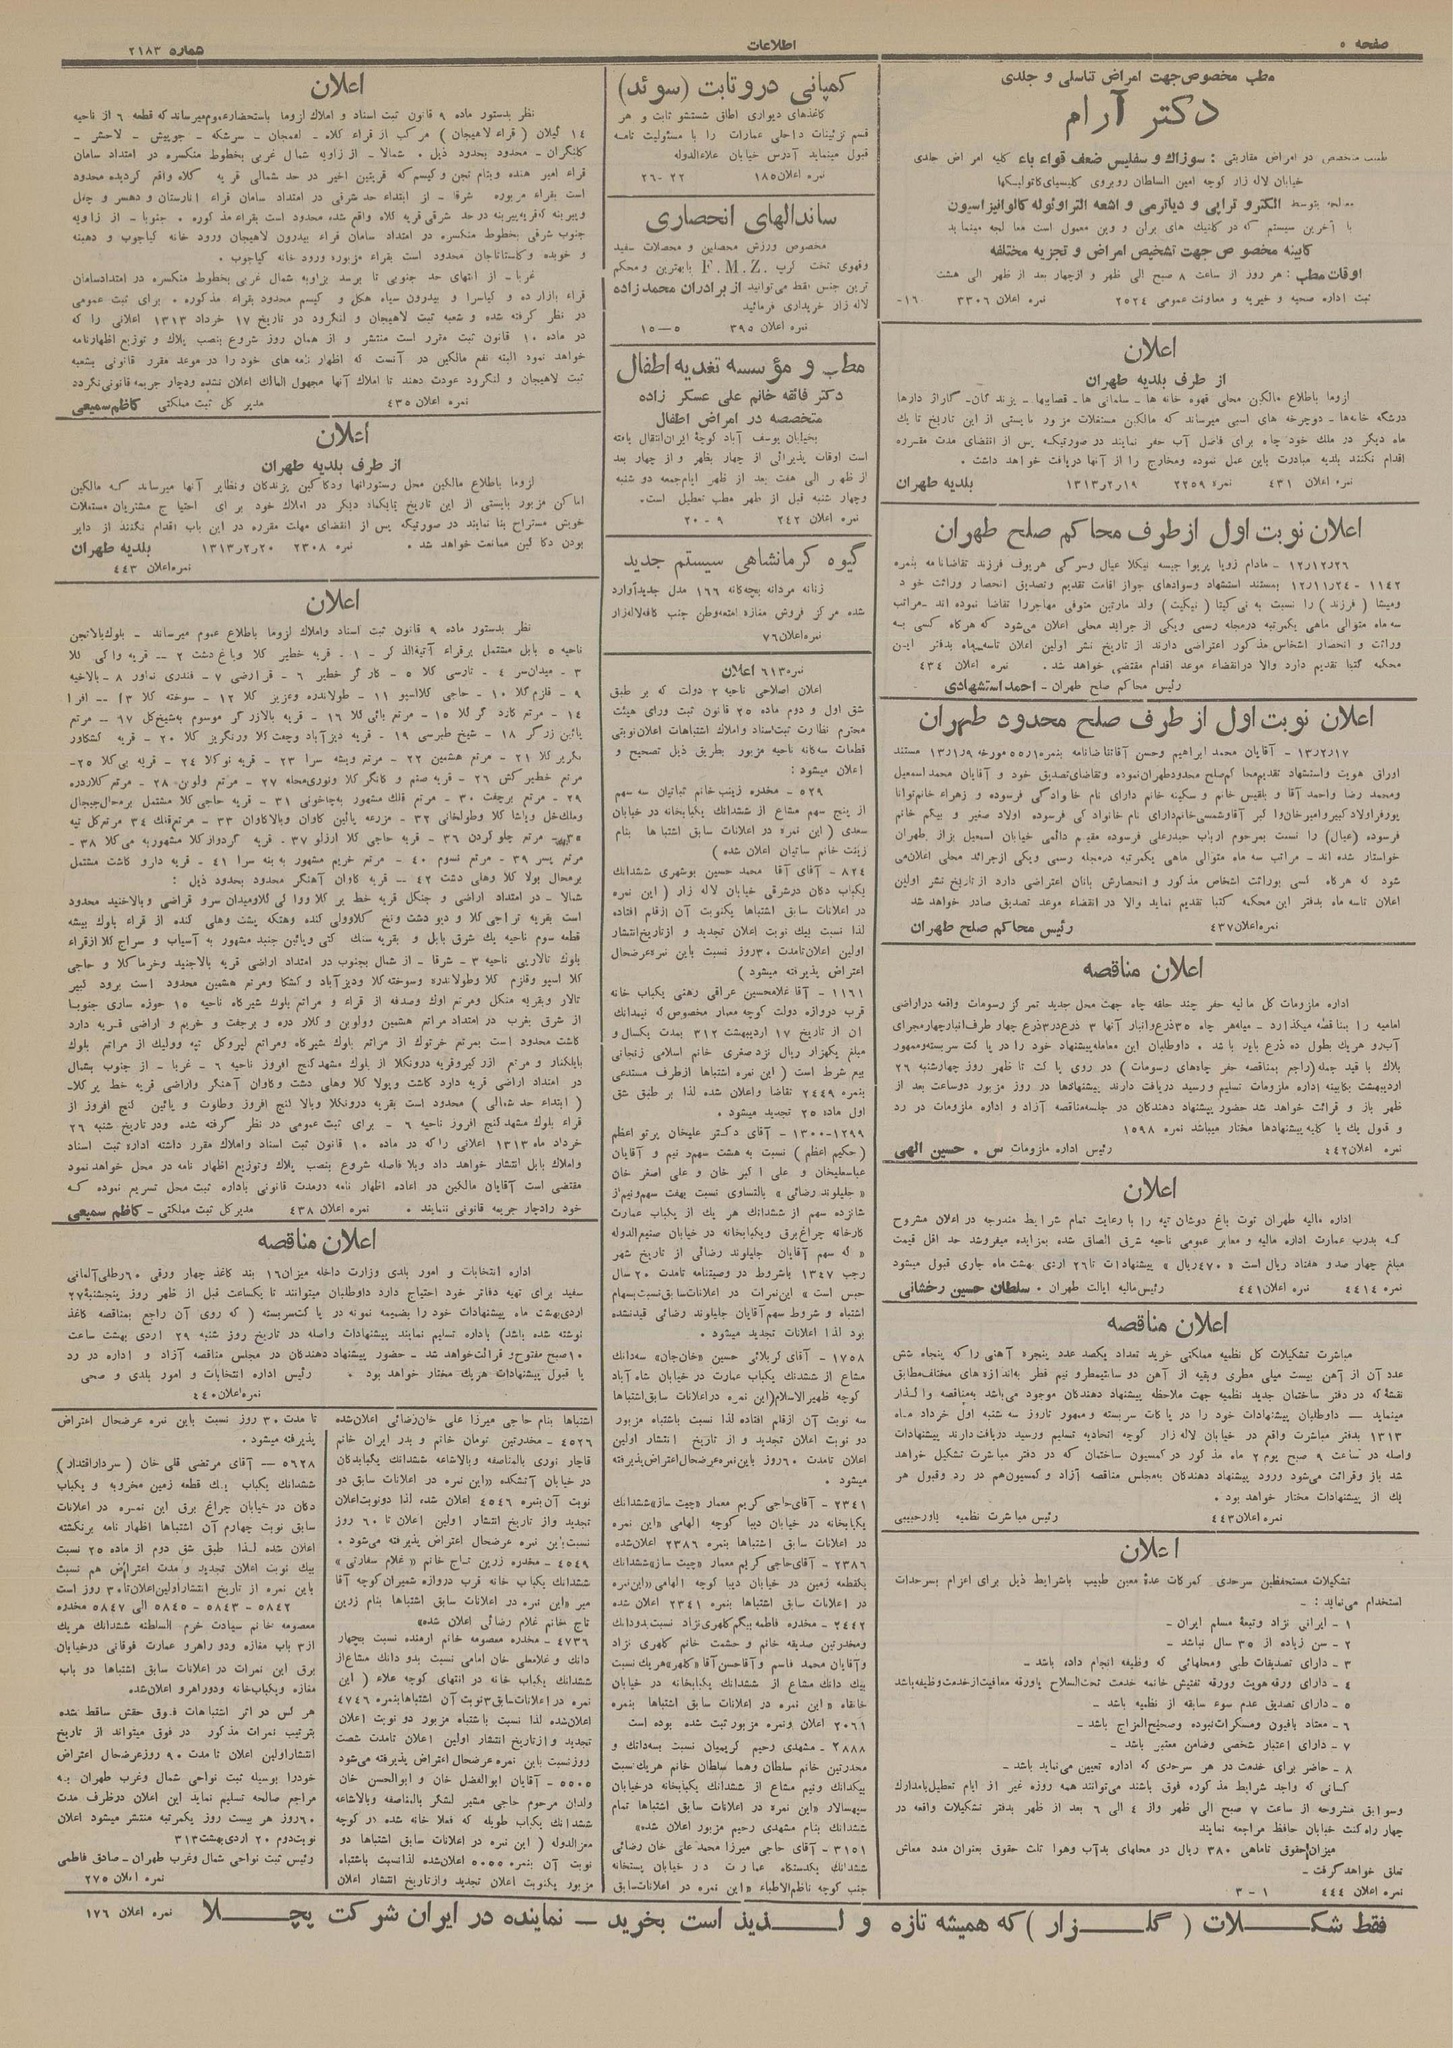 صفحه ۵
اطلاعات
شماره ۲۱۸۳
مطب مخصوص جهت امراض تناسلی و جلدی
دکتر آرام
طبیب متخصص در امراض مقاربتی : سوزاك و سفلیس ضعف قواء باء کلیه امراض جلدی
خیابان لاله زار کوچه امین السلطان روبروی کلیسیای کاتولیکها
معالجه بتوسط الکترو تراپی و دیاترمی و اشعه التراویوله کالوانیزاسیون
با آخرین سیستم که در کلنیك های برلن و وین معمول است معا لجه مینماید
کابینه مخصو ص جهت تشخیص امراض و تجزیه مختلفه
اوقات مطب : هر روز از ساعت ۸ صبح الی ظهر و ازچهار بعد از ظهر الی هشت
ثبت اداره صحیه و خیریه و معاونت عمومی ۲۵۲۴ نمره اعلان ۳۳۰۶ ۱۶۰-
اعلان
از طرف بلدیه طهران
لزوما باطلاع مالکین محلی قهوه خانه ها - سلمانی ها - قصابیها - یزند گان - گاراژ دارها
درشگه خانه‌ها - دوچرخه های اسبی میرساند که مالکین مستغلات مزبور بایستی از این تاریخ تا یك
ماه دیگر در ملك خود چاه برای فاضل آب حفر نمایند در صورتیکه پس از انقضای مدت مقرره
اقدام نکنند بلدیه مبادرت باین عمل نموده ومخارج را از آنها دریافت خواهد داشت .
نمره اعلان ۴۳۱ نمره ۲۲۵۹ ۱۳۱۳٫۲٫۱۹ بلدیه طهران
اعلان نوبت اول از طرف محاکم صلح طهران
۱۲٫۱۲٫۲۶ - مادام زویا پریوا جیسه نیکلا عیال وسرکی هریوف فرزند تقاضانامه بنمره
۱۱۴۲ - ۱۲٫۱۱٫۲۴ بمستند استشهاد وسوادهای جواز اقامت تقدیم وتصدیق انحصار وراثت خود
ومیشا ( فرزند ) را نسبت به نی کیتا ( نیکیت ) ولد مارتین متوفی مهاجررا تقاضا نموده اند - مراتب
سه ماه متوالی ماهی یکمرتبه درمجله رسمی ویکی از جراید محلی اعلان می‌شود که هرکاه کسی به
وراثت و انحصار اشخاص مذکور اعتراضی دارند از تاریخ نشر اولین اعلان تاسه‌ماه بدفتر ایـن
محکمه کتبا تقدیم دارد والا درانقضاء موعد اقدام مقتضی خواهد شد . نمره اعلان ۴۳۴
رئیس محاکم صلح طهران - احمد استشهادی
اعلان نوبت اول از طرف صلح محدود طهران
۱۳٫۲٫۱۷ - آقایان محمد ابراهیم وحسن آقاتقاضانامه بنمره ۵۵٫۱ مورخه ۱۳٫۱٫۹ مستند
اوراق هویت واستشهاد تقدیم‌محاکم‌صلح محدودطهران‌نموده وتقاضای‌تصدیق خود و آقایان محمد اسمعیل
ومحمد رضا واحمد آقا و بلقیس خانم و سکینه خانم دارای نام خانواد گی فرسوده و زهراء خانم‌توانا
فرسوده (عیال) را نسبت بمرحوم ارباب حیدرعلی فرسوده مقیم دائمی خیابان اسمعیل بزاز طهران
خواستار شده اند - مراتب سه ماه متوالی ماهی یکمرتبه درمجله رسمی ویکی ازجرائد محلی اعلان‌می
شود که هرکاه کسی بوراثت اشخاص مذکور و انحصارش بانان اعتراضی دارد ازتاریخ نشر اولین
اعلان تاسه ماه بدفتر این محکمه کتبا تقدیم نماید والا در انقضاء موعد تصدیق صادر خواهد شد
نمره‌اعلان ۴۳۷ رئیس محاکم صلح طهران
اعلان مناقصه
اداره ملزومات کل مالیه حفر چند حلقه چاه جهت محل جدید تمرکز رسومات واقعه دراراضی
امامیه را بمناقصه میگذارد - میله‌هر چاه ۳۵ ذرع وانبار آنها ۳ ذرع‌در۳ ذرع چهار طرف‌انبارچهارمجرای
آب‌رو هریك بطول ده ذرع باید باشد . داوطلبان این معامله‌پیشنهاد خود را در پا کت سربسته‌وممهور
بلاك با قید جمله (راجع بمناقصه حفر چاه‌های رسومات ) در روی پا کت تا ظهر روز چهارشنبه ۲۶
اردیبهشت بکابینه اداره ملزومات تسلیم و رسید دریافت دارند پیشنهادها در روز مزبور دوساعت بعد از
ظهر باز و قرائت خواهد شد حضور پیشنهاد دهندگان در جلسه‌مناقصه آزاد و اداره ملزومات در رد
و قبول یك یا کلیه پیشنهادها مختار میباشد نمره ۱۵۹۸
نمره اعلان ۴۴۲ رئیس اداره ملزومات س . حسین الهی
اعلان
اداره مالیه طهران توت باغ دوشان تپه را با رعایت تمام شرایط مندرجه در اعلان مشروح
کـه بدرب عمارت اداره مالیه و معابر عمومی ناحیه شرق الصاق شده بمزایده میفروشد حد اقل قیمت
مبلغ چهار صد و هفتاد ریال است «۴۷۰ ریال» پیشنهادات تا۲۶ اردی بهشت ماه جاری قبول میشود
نمره ۴۴۱۴ نمره اعلان ۴۴۱ رئیس مالیه ایالت طهران . سلطان حسین رخشانی
اعلان مناقصه
مباشرت تشکیلات کل نظمیه مملکتی خرید تعداد یکصد عدد پنجره آهنی را که پنجاه شش
عدد آن از آهن بیست میلی مطری وبقیه از آهن دو سانتیمطرو نیم قطر به‌اندازه‌های مختلف‌مطابق
نقشهٔ که در دفتر ساختمان جدید نظمیه جهت ملاحظه پیشنهاد دهندگان موجود می‌باشد به‌مناقصه واگـذار
مینماید — داوطلبان پیشنهادات خود را در پا کات سربسته و ممهور تاروز سه شنبه اول خرداد مـاه
۱۳۱۳ بدفتر مباشرت واقع در خیابان لاله زار کوچه اتحادیه تسلیم ورسید دریافت دارند پیشنهادات
واصله در ساعت ۹ صبح یوم ۲ ماه مذکور در کمسیون ساختمان که در دفتر مباشرت تشکیل خواهد
شد باز وقرائت می‌شود ورود پیشنهاد دهندگان به‌مجلس مناقصه آزاد و کمسیون‌هم در رد وقبول هر
یك از پیشنهادات مختار خواهد بود .
نمره اعلان ۴۴۳ رئیس مباشرت نظمیه یاورحبیبی
اعلان
تشکیلات مستحفظین سرحدی گمرکات عدهٔ معین طبیب باشرایط ذیل برای اعزام بسرحدات
استخدام می‌نماید : -
۱ - ایرانی نژاد وتبعهٔ مسلم ایران -
۲ - سن زیاده از ۳۵ سال نباشد -
۳ - دارای تصدیقات طبی ومحلهائی که وظیفه انجام داده باشد -
۴ - دارای ورقه هویت وورقه تفتیش خاتمه خدمت تحت‌السلاح یاورقه معافیت‌ازخدمت وظیفه‌باشد
۵ - دارای تصدیق عدم سوء سابقه از نظمیه باشد -
۶ - معتاد بافیون ومسکرات‌نبوده وصحیح‌المزاج باشد -
۷ - دارای اعتبار شخصی وضامن معتبر باشد -
۸ - حاضر برای خدمت در هر سرحدی که اداره تعیین می‌نماید باشد -
کسانی که واجد شرایط مذ کوره فوق باشند می‌توانند همه روزه غیر از ایام تعطیل‌بامدارك
وسوابق مشروحه از ساعت ۷ صبح الی ظهر واز ۴ الی ۶ بعد از ظهر بدفتر تشکیلات واقعه در
چهار راه کنت خیابان حافظ مراجعه نمایند
میزان حقوق تاماهی ۳۸۰ ریال در محلهای بدآب وهوا ثلث حقوق بعنوان مدد معاش
تعلق خواهد گرفت -
نمره اعلان ۴۴۴ ۱ - ۳
کمپانی درو تابت (سوئد)
کاغذهای دیواری اطاق شستشو ثابت و هر
قسم تزئینات داخلی عمارات را با مسئولیت تامه
قبول مینماید آدرس خیابان علاءالدوله
نمره اعلان ۱۸۵ ۲۲ - ۲۶
ساندالهای انحصاری
مخصوص ورزش محصلین و محصلات سفید
وقهوی تخت کرپ F. M. Z. بابهترین ومحکم
ترین جنس فقط می‌توانید از برادران محمد زاده
لاله زار خریداری فرمائید
نمره اعلان ۳۹۵ ۵—۱۵
مطب و مؤسسه تغدیه اطفال
دکتر فائقه خانم علی عسکر زاده
متخصصه در امراض اطفال
بخیابان یوسف آباد کوچهٔ ایران‌انتقال یافته
است اوقات پذیرائی از چهار بظهر و از چهار بعد
از ظهر الی هفت بعد از ظهر ایام‌جمعه دو شنبه
وچهار شنبه قبل از ظهر مطب تعطیل است .
نمره اعلان ۲۴۲ ۹ - ۲۰
گیوه کرمانشاهی سیستم جدید
زنانه مردانه بچه‌گانه ۱۶۶ مدل جدیدآوارد
شده مرکز فروش مغازه امتعه‌وطن جنب کافه‌لاله‌زار
نمره‌اعلان ۷۶
نمره ۶۱۳ اعلان
اعلان اصلاحی ناحیه ۲ دولت که بر طبق
شق اول و دوم ماده ۲۵ قانون ثبت ورای هیئت
محترم نظارت ثبت‌اسناد واملاك اشتباهات اعلان‌نوبتی
قطعات سه‌گانه ناحیه مزبور بطریق ذیل تصحیح و
اعلان میشود :
۵۲۹ - مخدره زینب خانم ثباتیان سه سهم
از پنج سهم مشاع از ششدانك یکبابخانه در خیابان
سعدی ( این نمره در اعلانات سابق اشتباها بنام
زینت خانم ساتیان اعلان شده )
۸۲۴ - آقای آقا محمد حسین بوشهری ششدانك
یکباب دکان درشرقی خیابان لاله زار ( این نمره
در اعلانات سابق اشتباها یکنوبت آن ازقلم افتاده
لذا نسبت بیك نوبت اعلان تجدید و ازتاریخ‌انتشار
اولین اعلان‌تامدت ۳۰روز نسبت باین نمره‌عرضحال
اعتراض پذیرفته میشود )
۱۱۶۱ - آقا غلامحسین عراقی رهنی یکباب خانه
قرب دروازه دولت کوچه معمار مخصوص که نیمدانك
ان از تاریخ ۱۷ اردیبهشت ۳۱۲ بمدت یکسال و
مبلغ یکهزار ریال نزد صغری خانم اسلامی زنجانی
بیع شرط است ( این نمره اشتباها ازطرف مستدعی
بنمره ۲۴۴۹ تقاضا واعلان شده لذا بر طبق شق
اول ماده ۲۵ تجدید میشود .
۱۲۹۹-۱۳۰۰ - آقای دکتر علیخان پرتو اعظم
(حکیم اعظم ) نسبت به هشت سهم‌و نیم و آقایان
عباسعلیخان و علی اکبر خان و علی اصغر خان
« جلیلوند رضائی » بالتساوی نسبت بهفت سهم‌ونیم‌از
شانزده سهم از ششدانك هر یك از یکباب عمارت
کارخانه چراغ‌برق ویکبابخانه در خیابان صنیع‌الدوله
« که سهم آقایان جلیلوند رضائی از تاریخ شهر
رجب ۱۳۴۷ باشروط در وصیتنامه تامدت ۲۰ سال
حبس است » این‌نمرات در اعلانات‌سابق‌نسبت‌بسهام
اشتباه و شروط سهم‌آقایان جلیلوند رضائی قیدنشده
بود لذا اعلانات تجدید میشود .
۱۷۵۸ - آقای کربلائی حسین «خان‌جان» سه‌دانك
مشاع از ششدانك یکباب عمارت در خیابان شاه‌آباد
کوچه ظهیرالاسلام(این نمره دراعلانات سابق‌اشتباها
سه نوبت آن ازقلم افتاده لذا نسبت باشتباه مزبور
دو نوبت اعلان تجدید و از تاریخ انتشار اولین
اعلان تامدت ۶۰ روز باین‌نمره‌عرضحال‌اعتراض‌پذیرفته
میشود .
۲۳۴۱ - آقای حاجی کریم معمار «چیت ساز»ششدانك
یکبابخانه در خیابان دیبا کوچه الهامی «این نمره
در اعلانات سابق اشتباها بنمره ۲۳۸۶ اعلان‌شده
۲۳۸۶ - آقای‌حاجی کریم معمار «چیت ساز»ششدانك
یکقطعه زمین در خیابان دیبا کوچه الهامی «این‌نمره
در اعلانات سابق اشتباها بنمره ۲۳۴۱ اعلان شده
۲۴۴۲ - مخدره فاطمه بیگم‌کلهری‌نژاد نسبت‌بدودانك
ومخدرتین صدیقه خانم و حشمت خانم کلهری نژاد
وآقایان محمد قاسم وآقاحسن‌آقا «کلهر»هریك‌نسبت
بیك دانك مشاع از ششدانك یکبابخانه در خیابان
خانقاه «این نمره در اعلانات سابق اشتباها بنمره
۲۰۶۱ اعلان ونمره مزبورثبت شده بوده است
۲۸۸۸ - مشهدی رحیم کریمیان نسبت بسه‌دانك و
مخدرتین خانم سلطان وهما سلطان خانم هریك‌نسبت
بیکدانك ونیم مشاع از ششدانك یکبابخانه درخیابان
سپهسالار «این نمره در اعلانات سابق اشتباها تمام
ششدانك بنام مشهدی رحیم مزبور اعلان شده»
۳۱۵۱ - آقای حاجی میرزا محمد علی خان رضائی
ششدانك یکدستگاه عمارت در خیابان پستخانه
جنب کوچه ناظم‌الاطباء «این نمره در اعلانات‌سابق
اعلان
نظر بدستور ماده ۹ قانون ثبت اسناد و املاك لزوما باستحضارعموم‌میرساند‌که قطعه ۶ از ناحیه
۱۴ گیلان ( قراء لاهیجان ) مرکب از قراء کلاه - اهمجان - سرشکه - جوپیش - لاحشر -
کانگران - محدود بحدود ذیل . شمالا - از زاویه شمال غربی بخطوط منکسره در امتداد سامان
قراء امیر هنده وبنام تجن و کیسم که قریتین اخیر در حد شمالی قریه کلاه واقع گردیده محدود
است بقراء مزبوره شرقا - از ابتداء حد شرقی در امتداد سامان قراء انارستان و دهسر و چفل
وپیربنه که‌قریه‌پیربنه در حد شرقی قریه کلاه واقع شده محدود است بقراء مذکوره . جنوبا - از زاویه
جنوب شرقی بخطوط منکسره در امتداد سامان قراء بیدرون لاهیجان ورود خانه کیاجوب و دهبنه
و خوبده وکاستاناجان محدود است بقراء مزبوره ورود خانه کیاجوب .
غربا - از انتهای حد جنوبی تا برسد بزاویه شمال غربی بخطوط منکسره در امتدادسامان
قراء بازارده و کیاسرا و بیدرون سیاه هکل و کیسم محدود بقراء مذکوره . برای ثبت عمومی
در نظر گرفته شده و شعبه ثبت لاهیجان و لنگرود در تاریخ ۱۷ خرداد ۱۳۱۳ اعلانی را که
در ماده ۱۰ قانون ثبت مقرر است منتشر و از همان روز شروع بنصب پلاك و توزیع اظهارنامه
خواهد نمود البته نفع مالکین در آنست که اظهار نامه های خود را در موعد مقرر قانونی بشعبه
ثبت لاهیجان و لنگرود عودت دهند تا املاك آنها مجهول المالك اعلان نشده ودچار جریمه قانونی‌نگردد
نمره اعلان ۴۳۵ مدیر کل ثبت مملکتی کاظم سمیعی
اعلان
از طرف بلدیه طهران
لزوما باطلاع مالکین محل رستورانها ودکاکین یزندکان ونظایر آنها میرساند کـه مالکین
اماکن مزبور بایستی از این تاریخ تایکماه دیگر در املاك خود برای احتیاج مشتریان مستملات
خویش مستراح بنا نمایند در صورتیکه پس از انقضای مهلت مقرره در این باب اقدام نکنند از دایر
بودن دکا کین ممانعت خواهد شد . نمره ۲۳۰۸ ۱۳۱۳٫۲٫۲۰ بلدیه طهران
نمره‌اعلان ۴۴۳
اعلان
نظر بدستور ماده ۹ قانون ثبت اسناد واملاك لزوما باطلاع عموم میرساند - بلوك‌بالاتجن
ناحیه ۵ بابل مشتمل برقراء آتیه‌الذکر - ۱ - قریه خطیر کلا وباغ دشت ۲ — قریه واکی کلا
۳ - میدان‌سر ۴ - تارسی کلا ۵ - کارگر خطیر ۶ - قراخیل ۷ - قندری نماور ۸ - بالاخیه
۹ - قلزم کلا ۱۰ - حاجی کلاآسیو ۱۱ - طولاندره وعزیز کلا ۱۲ - سوخته کلا ۱۳ — افرا
۱۴ - مرتع کارد گر کلا ۱۵ - مرتع بائی کلا ۱۶ - قریه بالازرگر موسوم به‌شیخ‌کل ۱۷ — مرتع
پائین زرگر ۱۸ - شیخ طبرسی ۱۹ - قریه دیزآباد وچمت کلا ورنگریز کلا ۲۰ - قریه کشکاور
مرتع پسر ۳۹ - مرتع نسوم ۴۰ - مرتع خریم مشهور به بنه سرا ۴۱ - قریه دارو کاشت مشتمل
برمحال بولا کلا وهلی دشت ۴۲ — قریه کاوان آهنگر محدود بحدود ذیل :
کاشت محدود است بمرتع خرنوك از مراتع بلوك شیرکاه ومراتع لپروکل تپه وولیك از مراتع بلوك
بابلکنار و مرتع ازرکیروقریه درونکلا از بلوك مشهدکنج افروز ناحیه ۶ - غربا - از جنوب بشمال
در امتداد اراضی قریه دارد کاشت وبولا کلا وهلی دشت وکاوان آهنگر واراضی قریه خطیر کلا-
( ابتداء حد شمالی ) محدود است بقریه درونکلا وبالا کنج افروز وطلوت و پائین کنج افروز از
قراء بلوك مشهدکنج افروز ناحیه ۶ - برای ثبت عمومی در نظر گرفته شده ودر تاریخ شنبه ۲۶
خرداد ماه ۱۳۱۳ اعلانی راکه در ماده ۱۰ قانون ثبت اسناد واملاك مقرر داشته اداره ثبت اسناد
واملاك بابل انتشار خواهد داد وبلا فاصله شروع بنصب پلاك وتوزیع اظهار نامه در محل خواهد نمود
مقتضی است آقایان مالکین در اعاده اظهار نامه درمدت قانونی باداره ثبت محل تسریع نموده کـه
خود رادچار جریمه قانونی ننمایند . نمره اعلان ۴۳۸ مدیرکل ثبت مملکتی - کاظم سمیعی
اعلان مناقصه
اداره انتخابات و امور بلدی وزارت داخله میزان ۱۶ بند کاغذ چهار ورقی ۶۰رطلی‌آلمانی
سفید برای تهیه دفاتر خود احتیاج دارد داوطلبان میتوانند تا یکساعت قبل از ظهر روز پنجشنبهٔ۲۷
اردی‌بهشت ماه پیشنهادات خود را بضمیمه نمونه در پا کت‌سربسته ( که روی آن راجع بمناقصه کاغذ
نوشته شده باشد) باداره تسلیم نمایند پیشنهادات واصله در تاریخ روز شنبه ۲۹ اردی بهشت ساعت
۱۰صبح مفتوح و قرائت‌خواهد شد - حضور پیشنهاد دهندکان در مجلس مناقصه آزاد و اداره در رد
یا قبول پیشنهادات هریك مختار خواهد بود . رئیس اداره انتخابات و امور بلدی و صحی
نمره‌اعلان ۴۴۰
اشتباها بنام حاجی میرزا علی خان‌رضائی اعلان‌شده
۴۵۲۶ - مخدرتین تومان خانم و بدر ایران خانم
قاجار نوری بالمناصفه وبالاشاعه ششدانك یکبابدکان
در خیابان آتشکده «این نمره در اعلانات سابق دو
نوبت آن بنمره ۴۵۴۶ اعلان شده لذا دونوبت‌اعلان
تجدید واز تاریخ انتشار اولین اعلان تا ۶۰ روز
نسبت‌باین نمره عرضحال اعتراض پذیرفته می‌شود .
۴۵۴۹ - مخدره زرین تـاج خانم « غلام سفارتی »
ششدانك یکباب خانه قرب دروازه شمیران کوچه آقا
میر «این نمره در اعلانات سابق اشتباها بنام زرین
تاج خانم غلام رضائی اعلان شده»
۴۷۳۶ - مخدره معصومه خانم ارمنده نسبت بچهار
دانك وغلامعلی خان امامی نسبت بدو دانك مشاع‌از
ششدانك یکباب خانه در انتهای کوچه علاء ( این
نمره در اعلانات‌سابق۳نوبت آن اشتباهابنمره ۴۷۴۶
اعلان‌شده لذا نسبت باشتباه مزبور دو نوبت اعلان
تجدید و ازتاریخ انتشار اولین اعلان تامدت شصت
روزنسبت باین نمره عرضحال اعتراض پذیرفته می‌شود
۵۰۰۵ - آقایان ابوالفضل خان و ابوالحسن خان
ولدان مرحوم حاجی مشیر لشکر بالمناصفه وبالاشاعه
ششدانك یکباب طویله که فعلا خانه شده در کوچه
معزالدوله ( این نمره در اعلانات سابق اشتباها دو
نوبت آن بنمره ۵۰۵۵ اعلان‌شده لذانسبت باشتباه
مزبور یکنوبت اعلان تجدید وازتاریخ انتشار اعلان
تا مدت ۳۰ روز نسبت باین نمره عرضحال اعتراض
پذیرفته میشود .
۵۶۲۸ — آقای مرتضی قلی خان (سردار اقتدار)
ششدانك یکباب یـك قطعه زمین مخروبه و یکباب
دکان در خیابان چراغ برق این نمـره در اعلانات
سابق نوبت چهارم آن اشتباها اظهار نامه برنگشته
اعلان شده لـذا طبق شق دوم از ماده ۲۵ نسبت
بیك نوبت اعلان تجدید و مدت اعتراض هم نسبت
باین نمره از تاریخ انتشار اولین‌اعلان‌تا۳۰ روز است
۵۸۴۲ - ۵۸۴۳ - ۵۸۴۵ الی ۵۸۴۷ مخدره
معصومه خانم سیادت خرم السلطنه ششدانك هریك
از۳ باب مغازه ودو راهرو عمارت فوقانی درخیابان
برق این نمرات در اعلانات سابق اشتباها دو باب
مغازه ویکباب‌خانه ودوراهرو اعلان‌شده.
هر کس در اثر اشتباهات فـوق حقش ساقط شده
بترتیب نمرات مذکور در فوق میتواند از تاریخ
انتشاراولین اعلان تا مدت ۹۰ روزعرضحال اعتراض
خودرا بوسیله ثبت نواحی شمال وغرب طهران به
مراجع صالحه تسلیم نماید این اعلان درظرف مدت
۶۰روز هر بیست روز یکمرتبه منتشر میشود اعلان
نوبت‌دوم ۲۰ اردی‌بهشت۳۱۳
رئیس ثبت نواحی شمال وغرب طهران - صادق فاطمی
نمره اعلان ۲۷۵
فقط شکـلات ( گلـزار ) که همیشه تازه و لـذیذ است بخرید - نماینده در ایران شرکت یچـلا نمره اعلان ۱۷۶